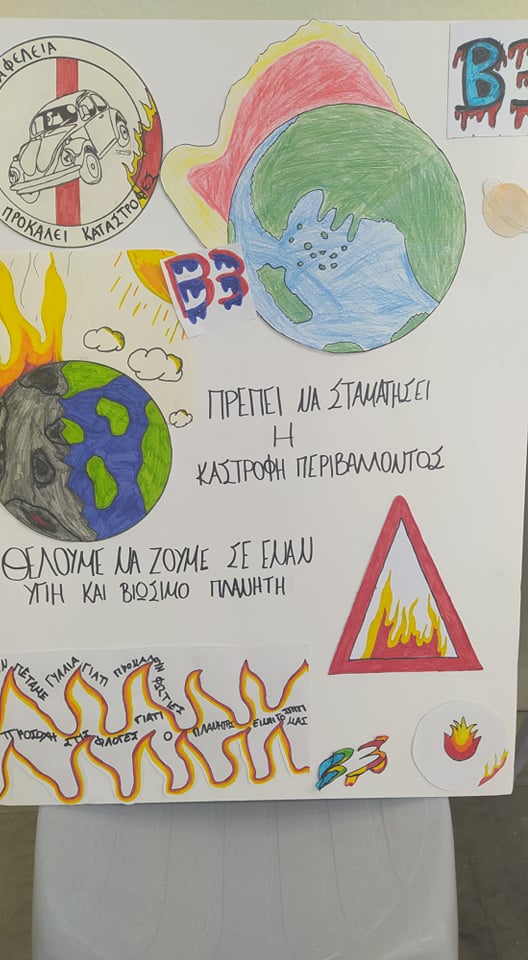 ΑΦΕΛΕΙΑ
ΠΡΟΚΑΛΕΙ ΚΑΤΑΣΤΡΟΦΕΣ
Β3
Β3
ΠΡΕΠΕΙ ΝΑ ΣΤΑΜΑΤΗΣΕΙ
Η
ΚΑΣΤΡΟΦΗ ΠΕΡΙΒΑΛΛΟΝΤΟΣ
ΘΕΛΟΥΜΕ ΝΑ ΖΟΥΜΕ ΣΕ ΕΝΑΝ
ΥΓΙΗ ΚΑΙ ΒΙΩΣΙΜΟ ΠΛΑΝΗΤΗ
ΠΕΤΑΜΕ ΓΥΑΛΙΑ ΓΙΑΤΙ ΠΡΟΚΑΛΟΥΝ ΦΩΤΙΕΣ
ΠΡΟΣΟΧΗ ΣΤΙΣ ΦΛΟΓΕΣ ΓΙΑΤΙ Ο ΠΛΑΝΗΤΗΣ ΕΙΝΑΙ ΤΟ ΣΠΙΤΙ ΜΑΣ
Β3